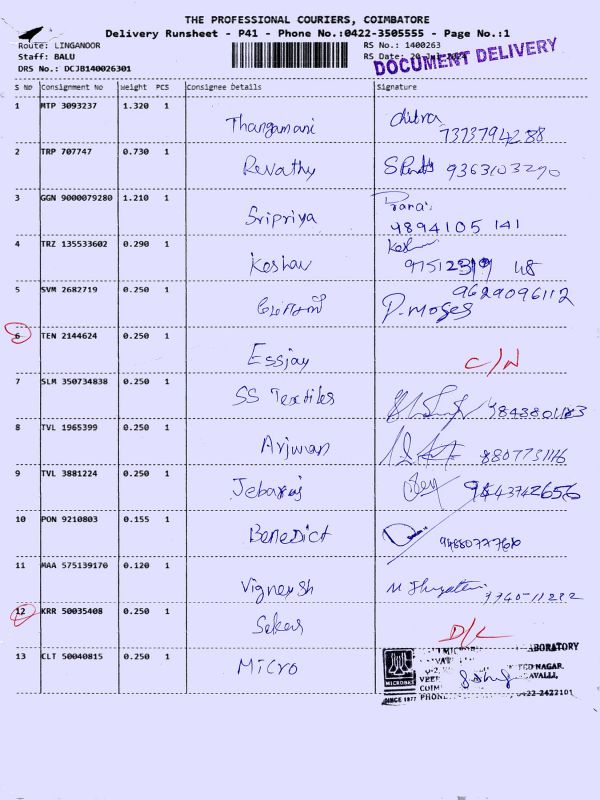 THE PROFESSIONAL COURIERS, COIMBATORE
Delivery Runsheet - P41 - Phone No.:0422-3505555 - Page No.:1
Route: LINGANOOR
RS No.: 1400263
Staff: BALU
RS Date: 20
DOCUMENT DELIVERY
DRS No.: DCJB140026301
S No Consignment No Weight PCS Consignee Details Signature
1 MTP 3093237 1.320 1 Thangamani 7373794288
2 TRP 707747 0.730 1 Revathy 9363103270
3 GGN 9000079280 1.210 1 Sripriya 9894105 141
4 TRZ 135533602 0.290 1 Keshav
5 SVM 2682719 0.250 1 P. Moses 9629096112
6 TEN 2144624 0.250 1 Essjay C/N
7 SLM 350734838 0.250 1 SS Textiles
8 TVL 1965399 0.250 1 Arjunan 8807731116
9 TVL 3881224 0.250 1 Jebaraj 9443742656
10 PON 9210803 0.155 1 Benedict
11 MAA 575139170 0.120 1 Vignesh
12 KRR 50035408 0.250 1 Sekar D/L
13 CLT 50040815 0.250 1 Micro
LABORATORY
NAGAR,
MICROBES
SINCE 1977 PHONE: 0422-2422101